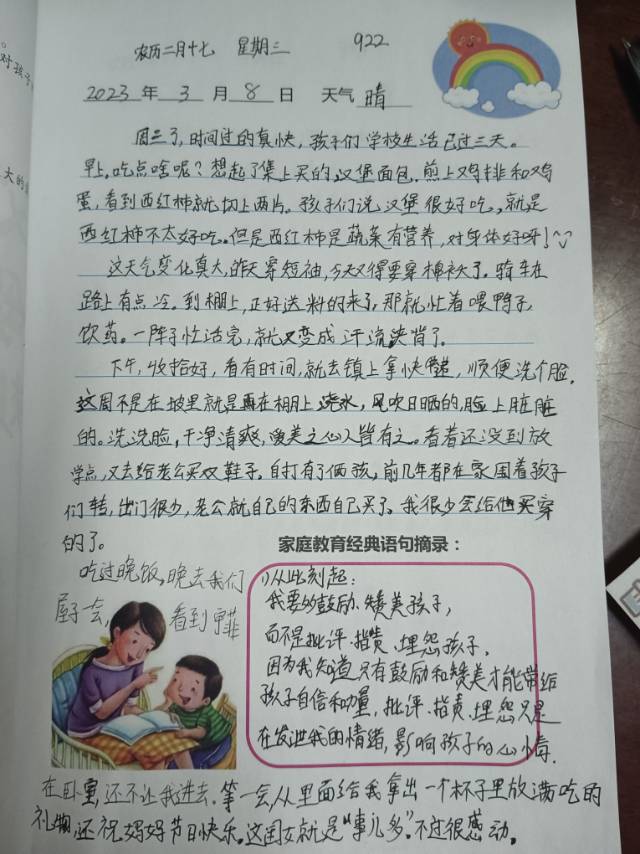 农历二月十七 星期三 922
2023 年 3 月 8 日 天气 晴
周三了,时间过的真快,孩子们学校生活已过三天。
早上,吃点啥呢?想起了集上买的汉堡面包,煎上鸡排和鸡
蛋,看到西红柿就切上两片。孩子们说汉堡很好吃,就是
西红柿不太好吃。但是西红柿是蔬菜有营养,对身体好呀!
这天气变化真大,昨天穿短袖,今天又得要穿棉袄了。骑车在
路上有点冷。到棚上,正好送料的来了,那就忙着喂鸭子,
饮药。一阵子忙活完,就又变成汗流浃背了。
下午,收拾好,看有时间,就去镇上拿快递,顺便洗个脸,
这周不是在坡里就是在棚上浇水,风吹日晒的,脸上脏脏
的。洗洗脸,干净清爽,爱美之心人皆有之。看着还没到放
学点,又去给老公买双鞋子。自打有了俩孩,前几年都在家围着孩子
们转,出门很少,老公就自己的东西自己买了。我很少会给他买穿
的了。
家庭教育经典语句摘录:
吃过晚饭,晚去我们
屋子一会,看到
1)从此刻起:
我要多鼓励、赞美孩子,
而不是批评、指责、埋怨孩子。
因为我知道只有鼓励和赞美才能带给
孩子自信和力量,批评、指责、埋怨只是
在发泄我的情绪,影响孩子的心情。
在卧室,还不让我进去。等一会从里面给我拿出一个杯子里放满吃的
礼物,还祝妈妈好节日快乐。这闺女就是“事儿多”。不过很感动。